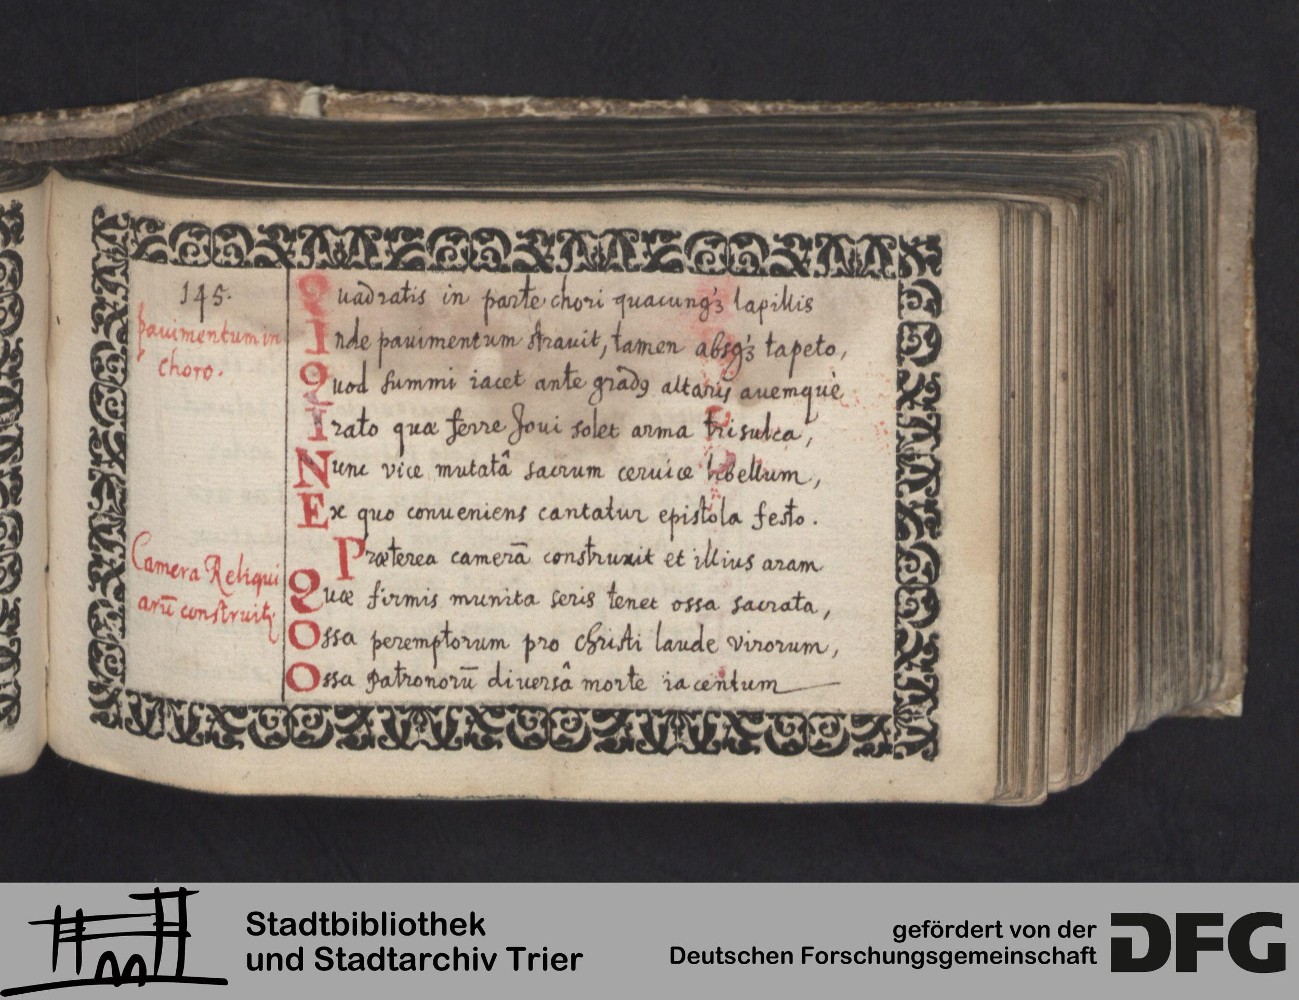 145.
pauimentum in
choro.
Quadratis in parte chori quacunqꝫ lapillis
Inde pauimentum strauit, tamen absqꝫ tapeto,
Quod summi iacet ante gradꝰ altaris auemquè
Irato quæ ferre Joui solet arma trisulca,
Nunc vice mutatâ sacrum ceruice libellum,
Ex quo conueniens cantatur epistola festo.
Camera Reliqui
arū construitꝫ
Præterea camerā construxit et illius aram
Quæ firmis munita seris tenet ossa sacrata,
Ossa peremptorum pro christi laude virorum,
Ossa patronorū diuersâ morte iacentum
Stadtbibliothek
und Stadtarchiv Trier
gefördert von der
Deutschen Forschungsgemeinschaft
DFG